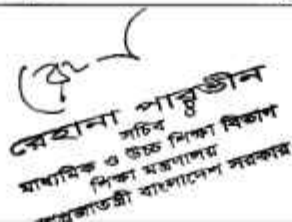 রেহানা পারভীন
সচিব
মাধ্যমিক ও উচ্চ শিক্ষা বিভাগ
শিক্ষা মন্ত্রণালয়
গণপ্রজাতন্ত্রী বাংলাদেশ সরকার